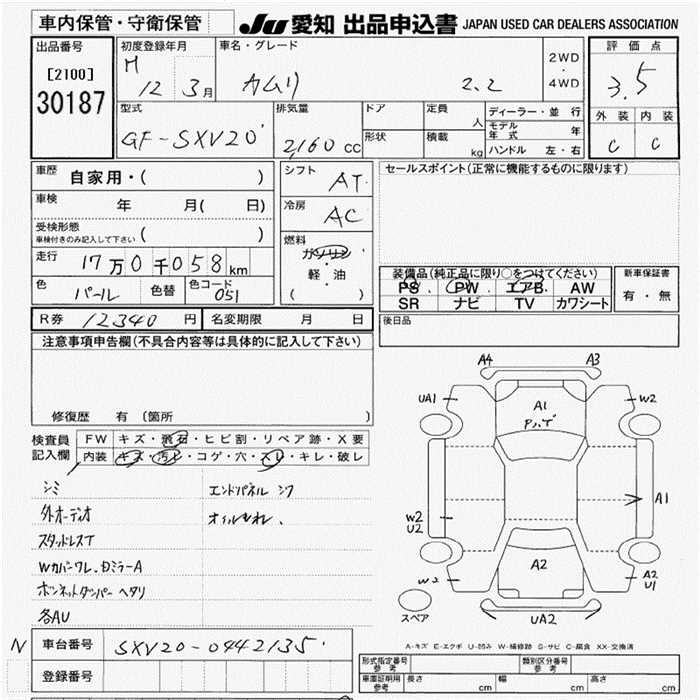 車内保管・守衛保管
JU 愛知 出品申込書 JAPAN USED CAR DEALERS ASSOCIATION
出品番号
[2100]
30187
初度登録年月
H 12 3月
車名・グレード
カムリ 2.2
2WD
・
4WD
評価点
3.5
外装 内装
C C
型式
GF-SXV20
排気量
2,160 CC
ドア
形状
定員
人
積載
kg
ディーラー・並行
モデル年式 年
ハンドル 左・右
車歴
自家用・( )
車検
年 月( 日)
受検形態
車検付きのみ記入して下さい ( )
走行
17万0千058km
色
パール
色替
色コード
051
シフト
AT
冷房
AC
燃料
ガソリン
・
軽・油
( )
セールスポイント(正常に機能するものに限ります)
装備品(純正品に限り○をつけてください)
PS PW エアB AW
SR ナビ TV カワシート
新車保証書
有・無
R券 12340 円
名変期限 月 日
後日品
注意事項申告欄(不具合内容等は具体的に記入して下さい)
修復歴 有〔箇所 〕
検査員
記入欄
FW キズ・飛石・ヒビ割・リペア跡・X要
内装 キズ・汚レ・コゲ・穴・スレ・キレ・破レ
シミ
外オーディオ
スタッドレスT
Wカバーワレ、Dミラー A
ボンネットダンパーヘタリ
各AU
エンドパネル シワ
オイルもれ、
A4 A3
UA1 W2
A1
A1
W2
U2
A2
W2
A2
U1
UA2
スペア
A-キズ E-エクボ U-凹み W-補修跡 S-サビ C-腐食 XX-交換済
N
車台番号 SXV20-0442135
登録番号
形式指定番号
参考
類別区分番号
参考
車庫証明用
参考
長さ cm 幅 cm 高さ cm